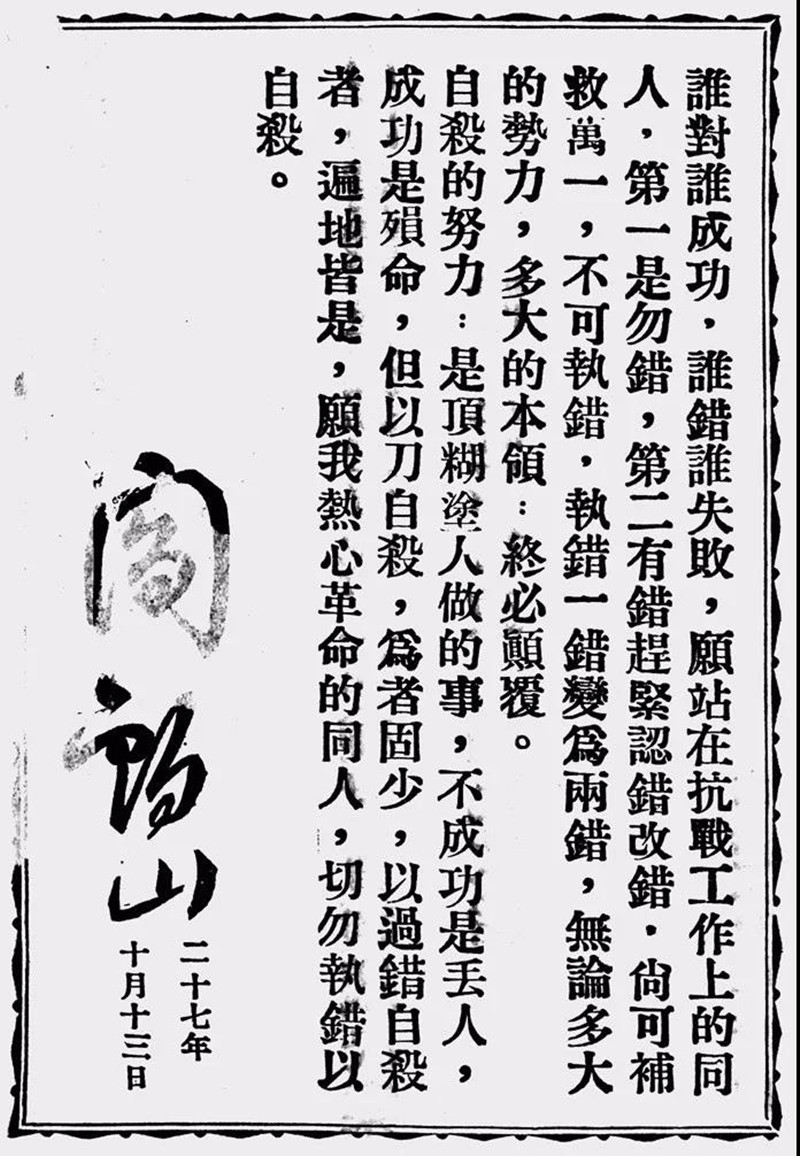 誰對誰成功，誰錯誰失敗，願站在抗戰工作上的同
人，第一是勿錯，第二有錯趕緊認錯改錯．尚可補
救萬一，不可執錯，執錯一錯變爲兩錯，無論多大
的勢力，多大的本領：終必顚覆。
自殺的努力：是頂糊塗人做的事，不成功是丟人，
成功是殞命，但以刀自殺，爲者固少，以過錯自殺
者，遍地皆是，願我熱心革命的同人，切勿執錯以
自殺。
閻錫山
二十七年
十月十三日